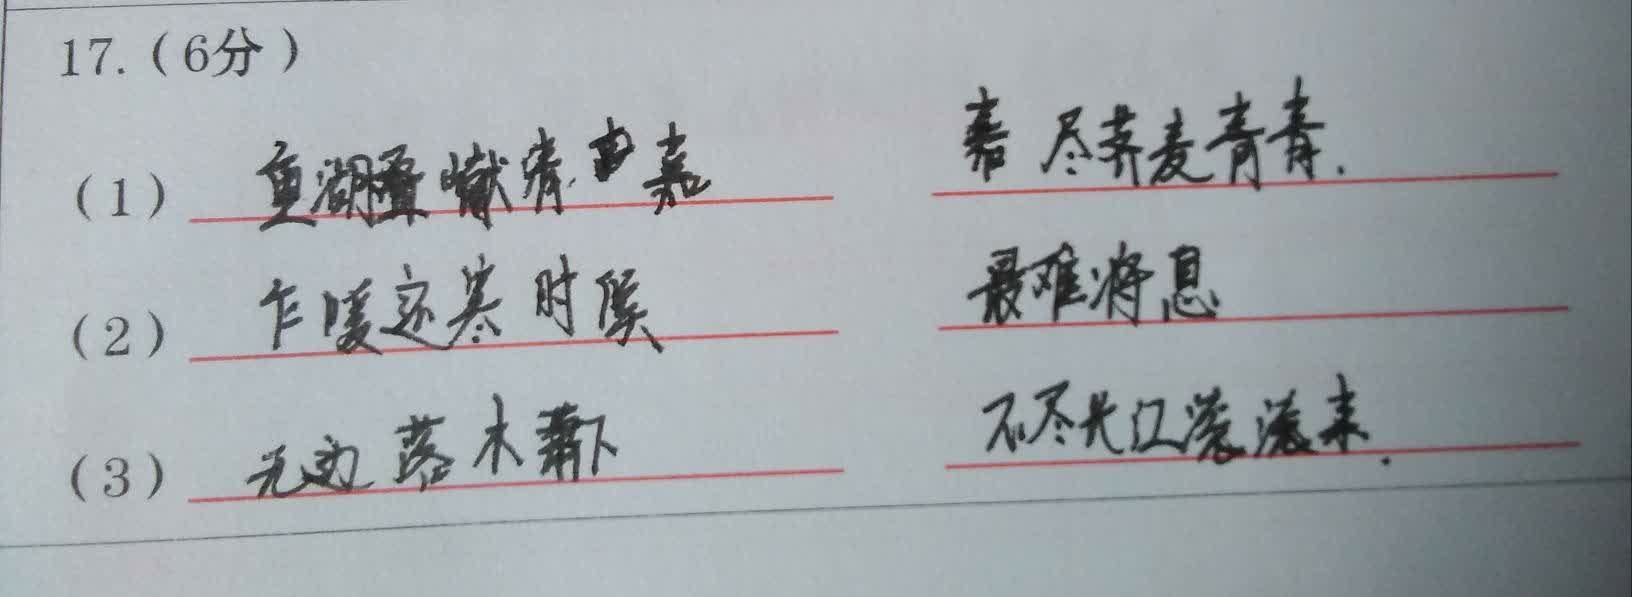 17.(6分)
(1) 重湖叠巘清嘉 尽荠麦青青.
(2) 乍暖还寒时候 最难将息
(3) 无边落木萧下 不尽长江滚滚来.